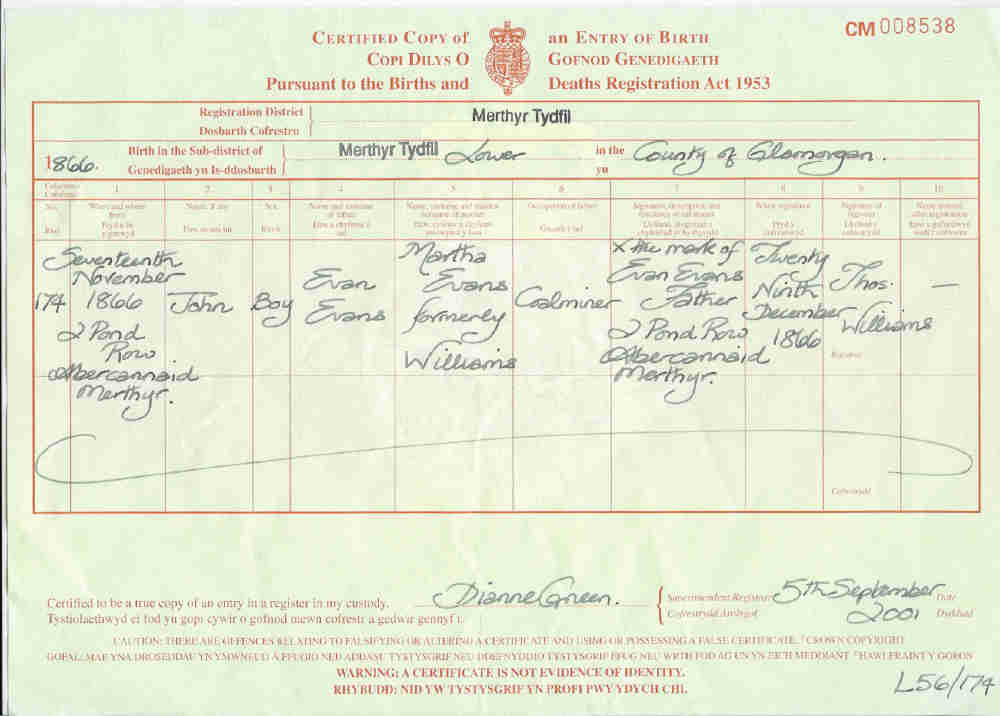 CM 008538
CERTIFIED COPY of an ENTRY OF BIRTH
COPI DILYS O GOFNOD GENEDIGAETH
Pursuant to the Births and Deaths Registration Act 1953
Registration District Merthyr Tydfil
Dosbarth Cofrestru
1866. Birth in the Sub-district of Merthyr Tydfil Lower in the County of Glamorgan.
Genedigaeth yn Is-ddosbarth yn
Columns 1 2 3 4 5 6 7 8 9 10
No. When and where born Name, if any Sex Name and surname of father Name, surname and maiden surname of mother Occupation of father Signature, description and residence of informant When registered Signature of registrar Name entered after registration
174
Seventeenth November 1866 2 Pond Row Abercannaid Merthyr.
John
Boy
Evan Evans
Martha Evans formerly Williams
Coalminer
X the mark of Evan Evans Father 2 Pond Row Abercannaid Merthyr.
Twenty Ninth December 1866
Thos. Williams
Registrar
—
Cofrestrydd
Certified to be a true copy of an entry in a register in my custody. Dianne Green. Superintendent Registrar 5th September 2001 Date
Tystiolaethwyd ei fod yn gopi cywir o gofnod mewn cofrestr a gedwir gennyf i. Cofrestrydd Arolygol Dyddiad
CAUTION: THERE ARE OFFENCES RELATING TO FALSIFYING OR ALTERING A CERTIFICATE AND USING OR POSSESSING A FALSE CERTIFICATE. © CROWN COPYRIGHT
GOFAL: MAE YNA DROSEDDAU YN YMWNEUD Â FFUGIO NEU ADDASU TYSTYSGRIF NEU DDEFNYDDIO TYSTYSGRIF FFUG NEU WRTH FOD AG UN YN EICH MEDDIANT © HAWLFRAINT Y GORON
WARNING: A CERTIFICATE IS NOT EVIDENCE OF IDENTITY.
RHYBUDD: NID YW TYSTYSGRIF YN PROFI PWY YDYCH CHI.
L56/174